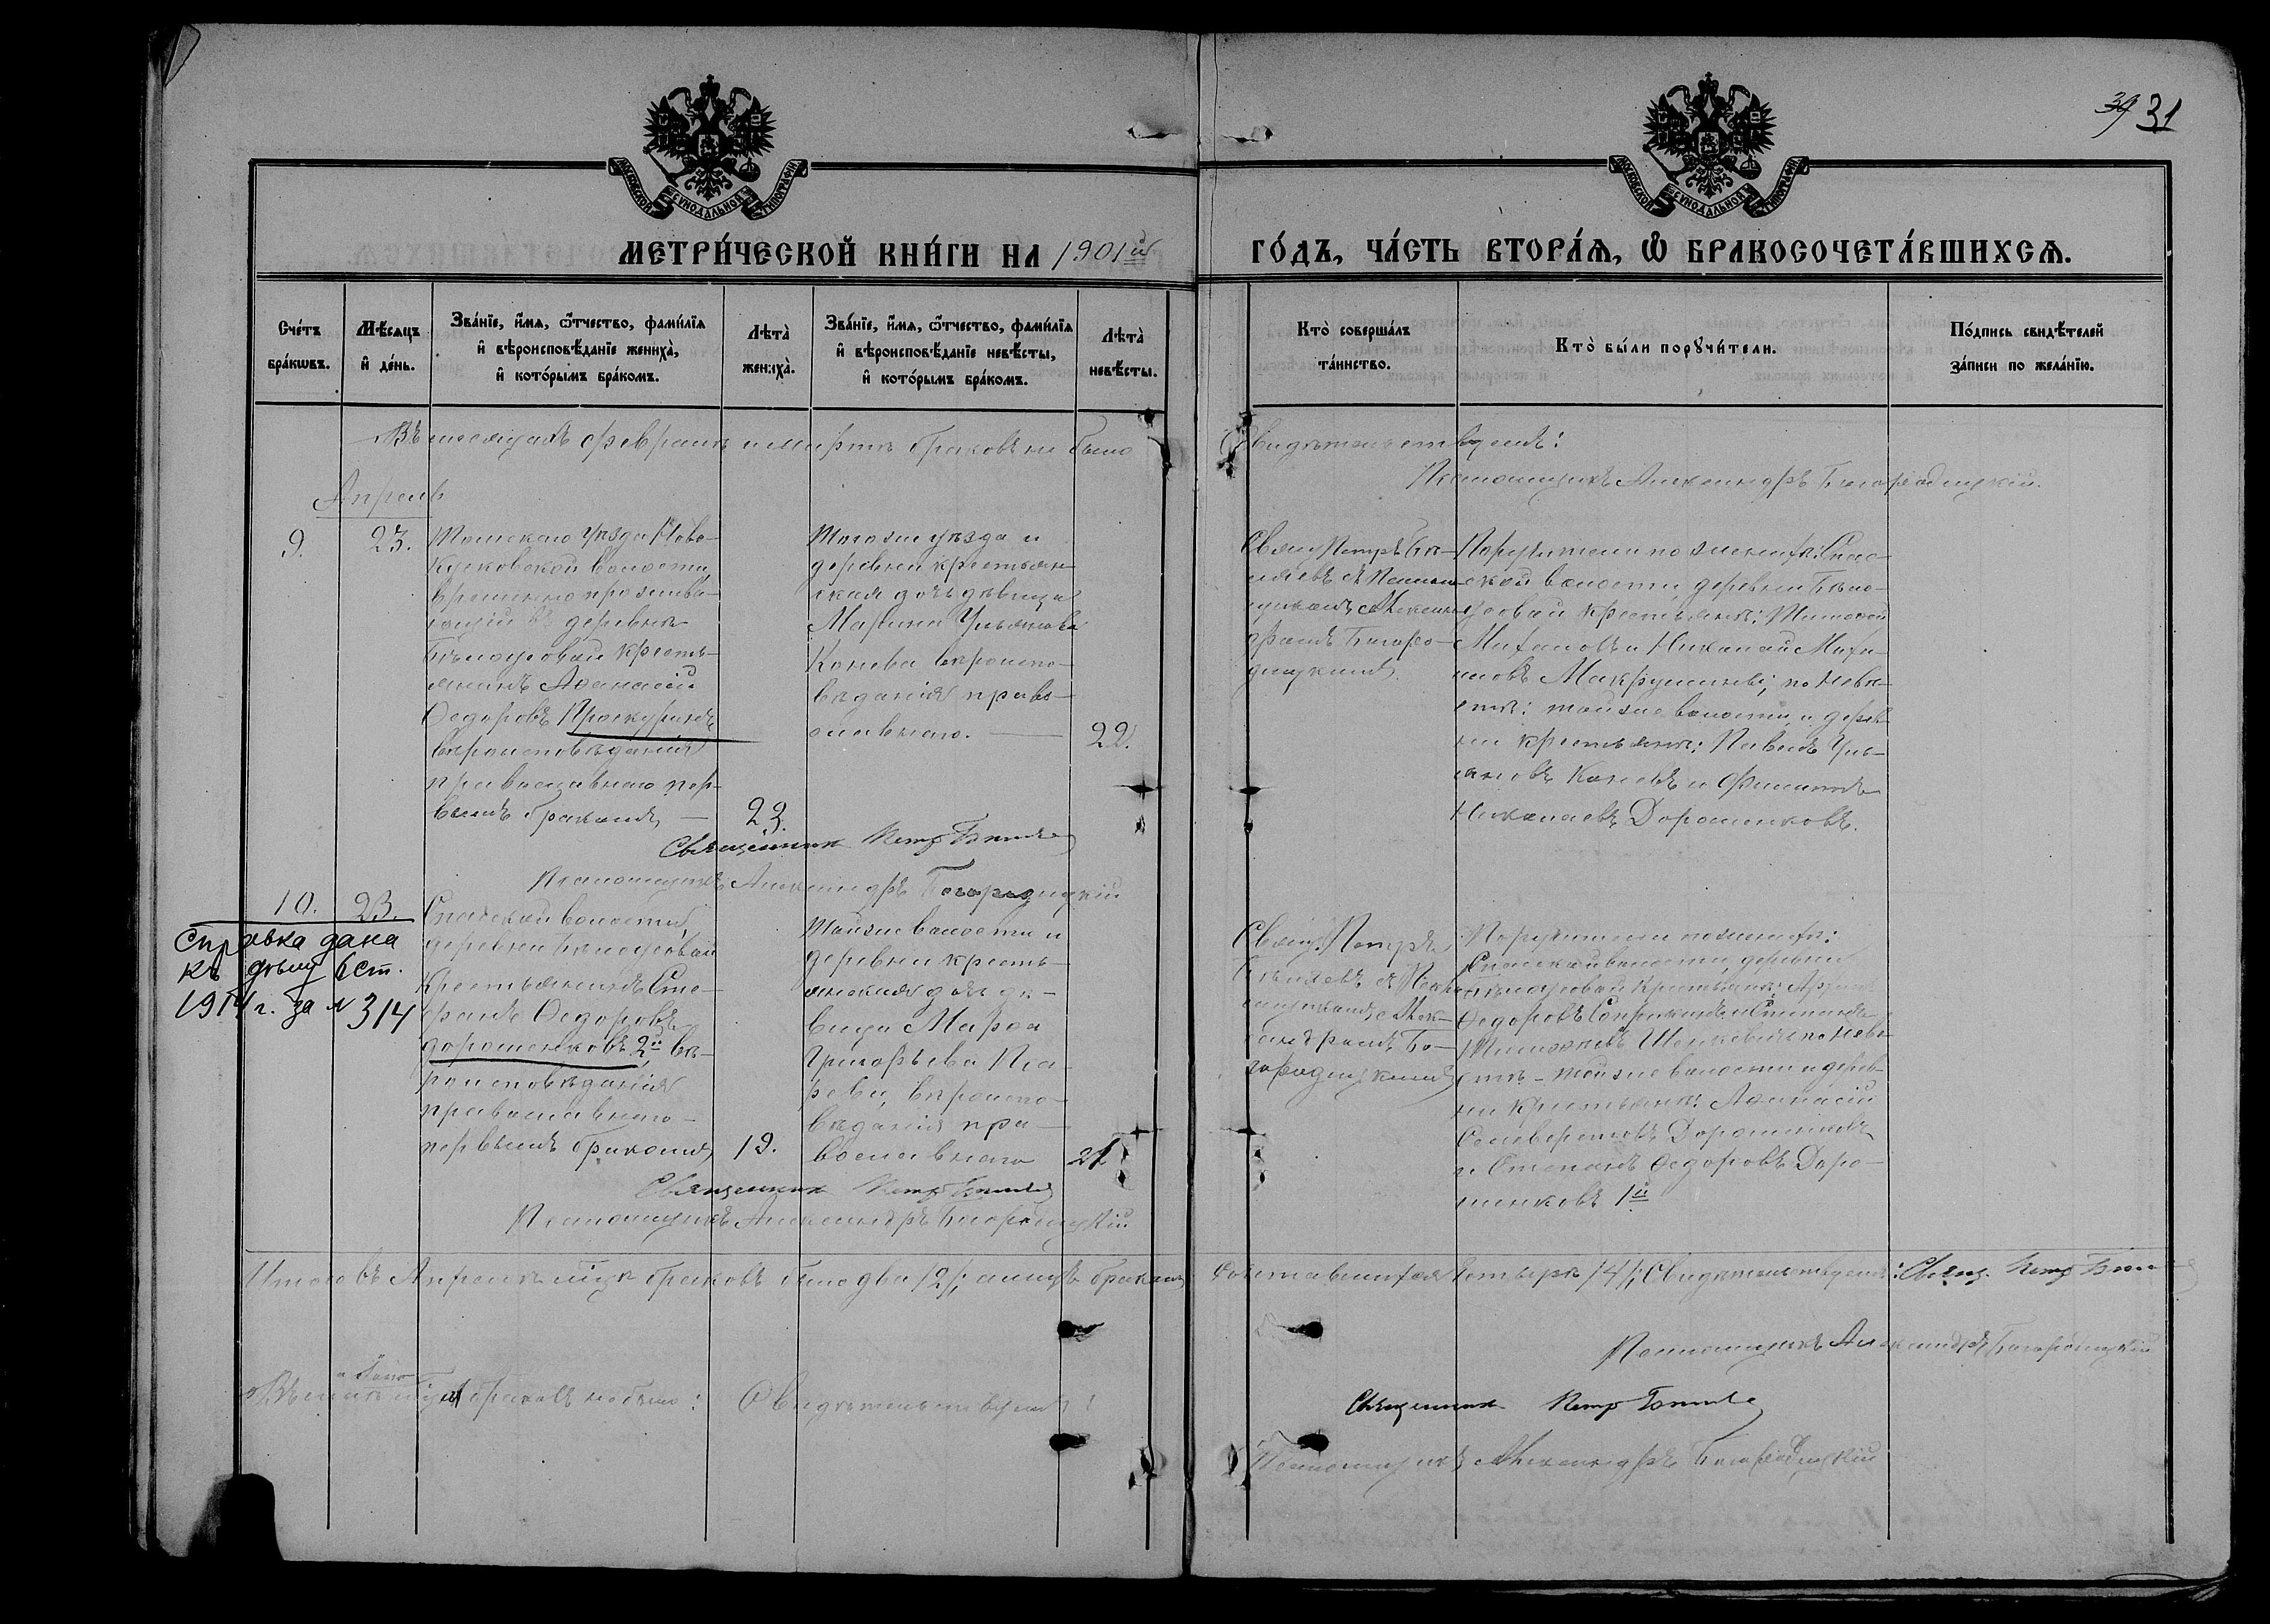 39 31
МОСКОВСКОЙ СѴНОДАЛЬНОЙ ТИПОГРАФІИ
МОСКОВСКОЙ СѴНОДАЛЬНОЙ ТИПОГРАФІИ
МЕТРИ́ЧЕСКОЙ КНИ́ГИ НА 1901й
ГО́ДЪ, ЧА́СТЬ ВТОРА́Ѧ, Ѽ БРАКОСОЧЕТА́ВШИХСѦ.
Сче́тъ
бра́кѡвъ.
Мѣ́сяцъ
и҆ де́нь.
Зва́нїе, и҆́мѧ, ѻ҆́тчество, фами́лїѧ
и҆ вѣроисповѣ́данїе жениха̀,
и҆ кото́рымъ бра́комъ.
Лѣта̀
жениха̀.
Зва́нїе, и҆́мѧ, ѻ҆́тчество, фами́лїѧ
и҆ вѣроисповѣ́данїе невѣ́сты,
и҆ кото́рымъ бра́комъ.
Лѣта̀
невѣ́сты.
Кто̀ соверша́лъ
та́инство.
Кто̀ бы́ли порꙋчи́тели.
По́дпись свидѣ́телей
за́писи по жела́нїю.
Въ месяцахъ февралѣ и мартѣ браковъ не было
Свидѣтельствуемъ:
Псаломщикъ Александръ Богородицкій.
Апрель
9.
23.
Томскаго уѣзда Ново-
Кусковской волости,
временно прожива-
ющій въ деревнѣ
Бѣлоусовой кресть-
янинъ Аѳанасій
Ѳедоровъ Проскуринъ
вѣроисповѣданія
православнаго пер-
вымъ бракомъ, —
23.
Того же уѣзда и
деревни крестьян-
ская дочь девица
Марина Ульянова
Конева вѣроиспо-
вѣданія право-
славнаго. —
22.
Свящ. Петръ Бѣ-
ляевъ съ Псалом-
щикомъ Алексан-
дромъ Богоро-
дицкимъ
Поручители по женихѣ: Спас-
ской волости, деревни Бѣло-
усовой крестьяне: Тимофей
и Николай
Макрушины; по невѣ-
стѣ: той же волости и дерев-
ни крестьяне: Павелъ Уль-
яновъ Коневъ и Филиппъ
Николаевъ Дорошенковъ.
Священникъ Петръ Бѣляевъ
Псаломщикъ Александръ Богородицкій
10.
23.
Справка дана
къ дѣлу 6 ст.
1914 г. за № 314
Спасской волости,
деревни Бѣлоусовой
крестьянинъ Сте-
фанъ Ѳедоровъ
Дорошенковъ 2й вѣ-
роисповѣданія
православнаго
первымъ бракомъ,
19.
Той же волости и
деревни кресть-
янская дочь дѣ-
вица Марѳа
Григорьева
вѣроиспо-
вѣданія пра-
вославнаго
21
Свящ. Петръ
Бѣляевъ съ Псал-
омщикомъ Алек-
сандромъ Бо-
городицкимъ
Поручители по женихѣ:
Спасской волости, деревни
Бѣлоусовой крестьяне:
Ѳедоровъ и Степанъ
по невѣ-
стѣ - той же волости и дерев-
ни крестьяне: Аѳанасій
Дорошенковъ
и Степанъ Ѳедоровъ Доро-
шенковъ 1й
Священникъ Петръ Бѣляевъ
Псаломщикъ Александръ Богородицкій
Итого въ Апрелѣ м‑цѣ браковъ было два /2/; лицъ бракомъ сочетавшихся четыре /4/; Свидѣтельствуемъ: Свящ. Петръ Бѣляевъ
Псаломщикъ Александръ Богородицкій
браковъ не было: Свидѣтельствуемъ:
Священникъ Петръ Бѣляевъ
Псаломщикъ Александръ Богородицкій